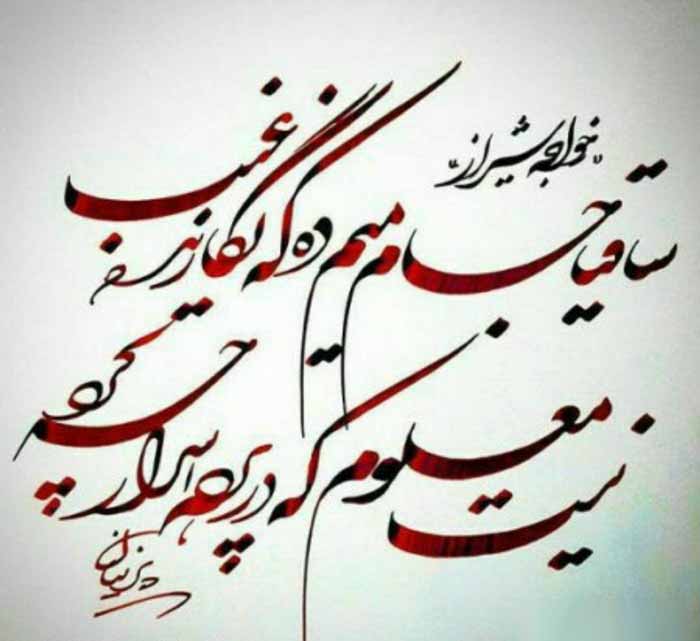 "خواجه شیراز"
ساقیا جام میم ده که نگارنده غیب
نیست معلوم که در پرده اسرار چه کرد